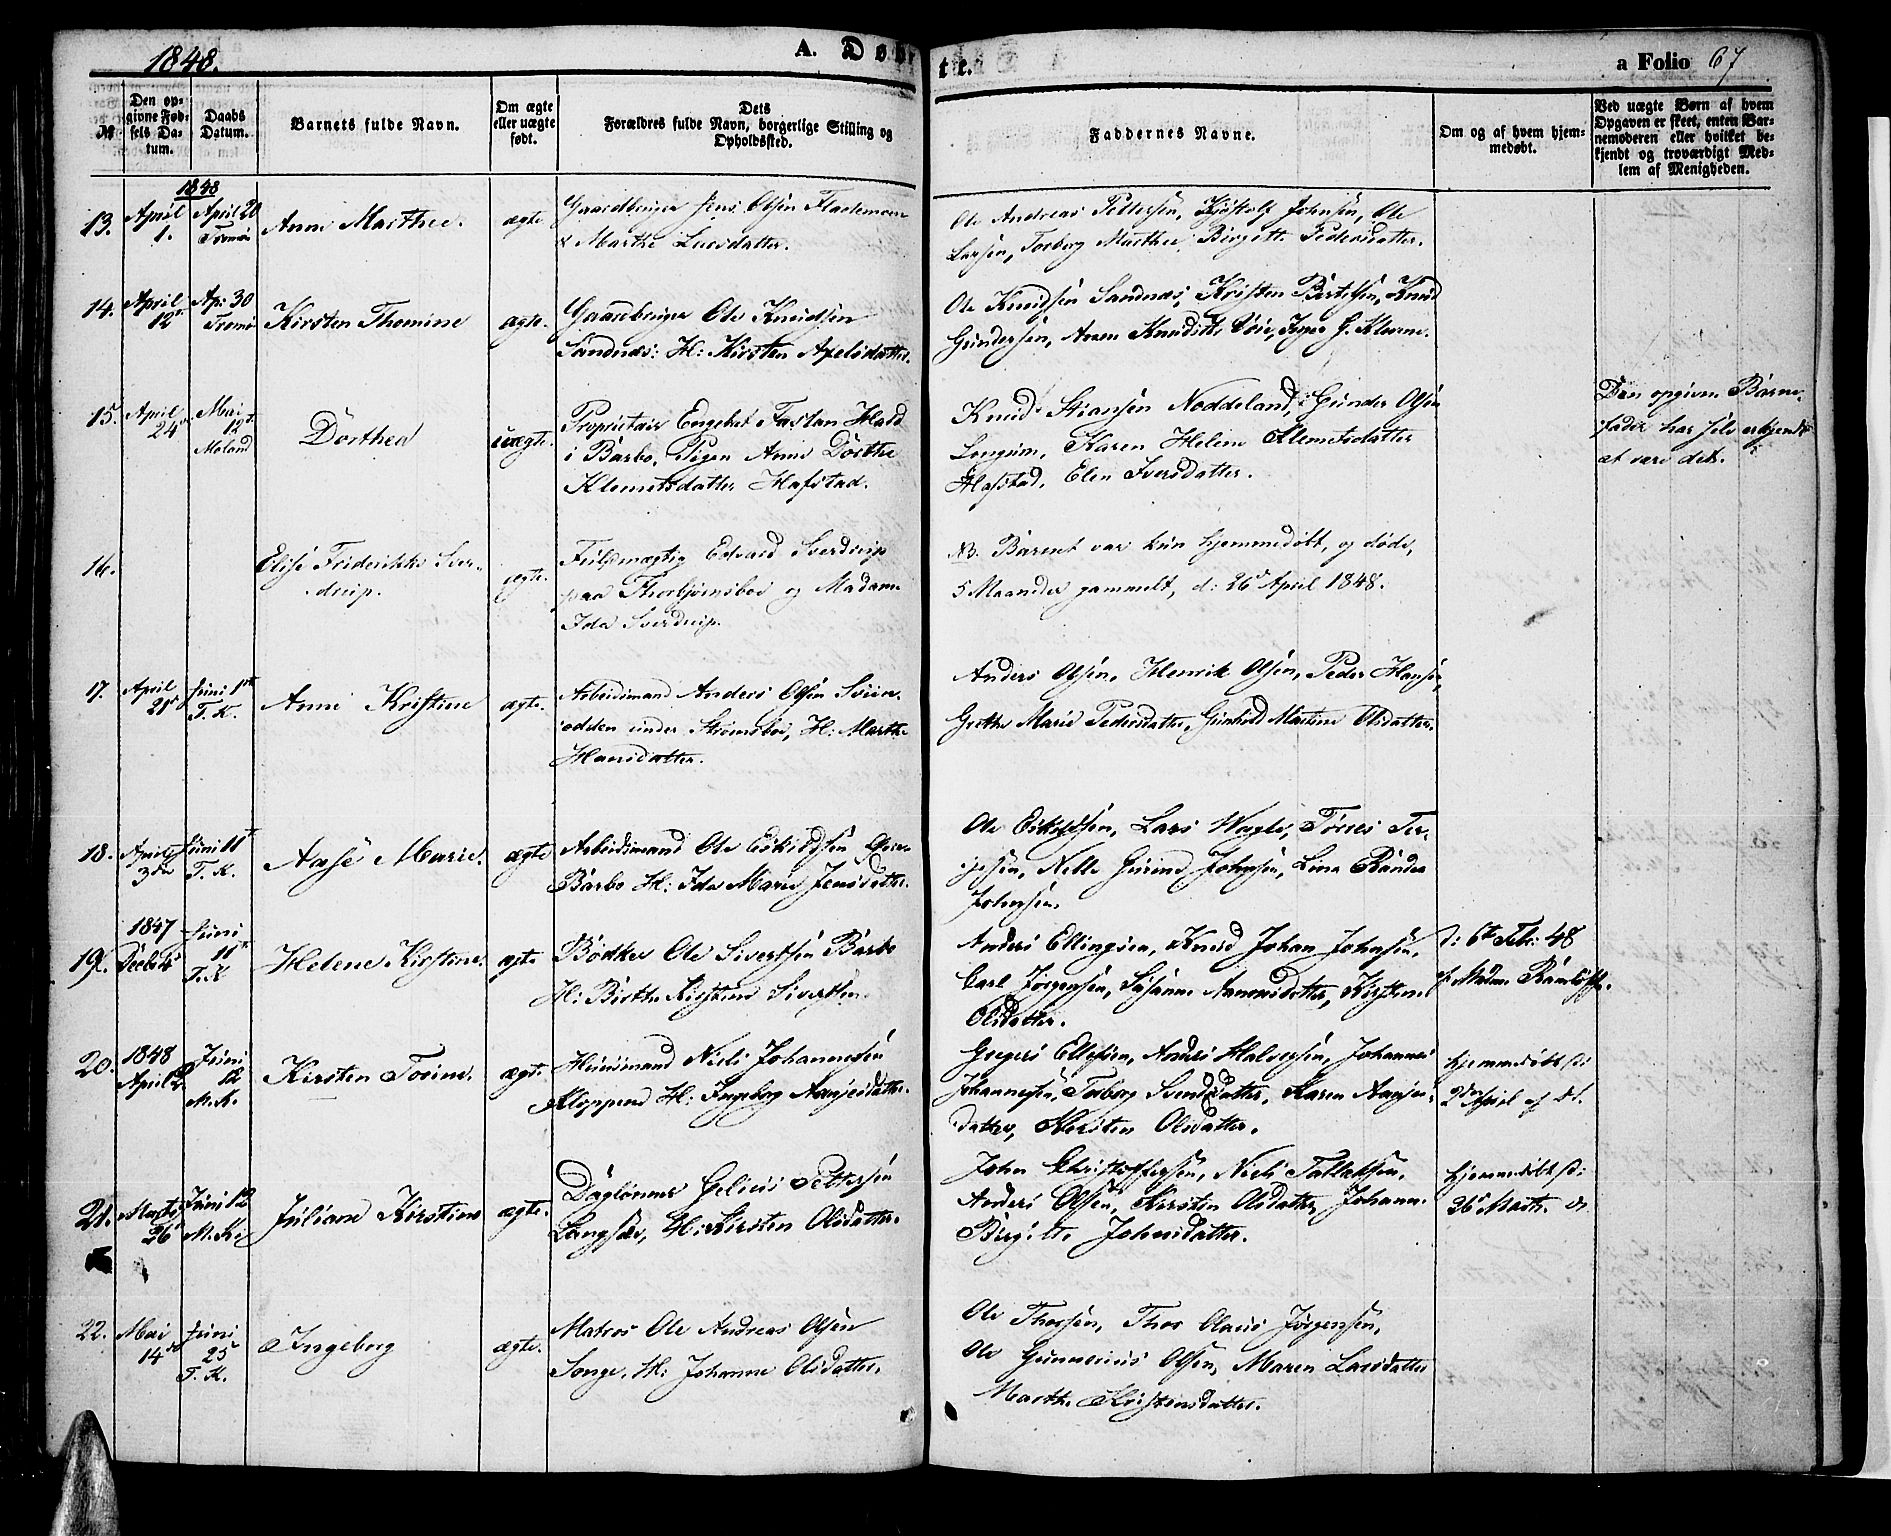 1848.
A. Døbte.
a Folio 67
№
Den opgivne Fødsels Datum.
Daabs Datum.
Barnets fulde Navn.
Om ægte eller uægte født.
Dets Forældres fulde Navn, borgerlige Stilling og Opholdssted.
Faddernes Navne.
Om og af hvem hjemmedøbt.
Ved uægte Børn af hvem Opgaven er skeet, enten Barnemoderen eller hvilket bekjendt og troværdigt Medlem af Menigheden.
1848
13. April 1. April 20 Tromø Anne Marthee. ægte
Gaardbruger Jens Olsen
& Marthe Larsdatter.
Ole Andreas Pettersen, Johnsen, Ole
Larsen, Torborg Marthee Birgitte Pedersdatter.
14. April 12te Ap: 30 Tromø Kirsten Thomine ægte.
Gaardbruger Ole Knudsen
Sandnæs: H: Kirsten Axelsdatter.
Ole Knudsen Sandnæs, Kristen Bertelsen, Knud
Gundersen, Anne
15. April 24de Mai 12te Moland Dorthea uægte.
Proprietair Engebret Hald
i Barbo, Pigen Anne Dorthe
Klemetsdatter Hafstad.
Knud Stiansen Noddeland, Gunder Olsen
Longum, Karen Helene Klemetsdatter
Hafstad, Elen Iversdatter.
Den opgivne Barne-
fader har selv erkjendt
at være det.
16. Elise Frideriкke Sver-
drup. ægte.
Fuldmægtig Edvard Sverdrup
paa Thorbjørnsboe og Madame
Ida Sverdrup.
NB. Barnet var kun hjemmedøbt, og døde,
5 Maaneder gammelt, d: 26de April 1848.
17. April 21de Juni 1ste T. K. Anne Kristine ægte.
Arbeidsmand Anders Olsen
odden under Strømsboe, H: Marthe
Hansdatter.
Anders Olsen, Henrik Olsen, Peder Hansen,
Grethe Marie Pedersdatter, Gunhild Martine Olsdatter.
18. April 3die Juni 11te T. K. Aase Marie. ægte
Arbeidsmand Ole Eskildsen
Barbo H: Ida Marie Jensdatter.
Ole Eskildsen, Lars Wagle, Tørres Ter-
jesen, Nelle Gurine Johnsen, Line
Johnsen.
19. 1847 Decbr 4de Juni 11te T. K Helene Kirstine. ægte
Bødker Ole Sivertsen Barbo
H: Birthe Kirstine Sivertsen.
Anders Ellingsen, Knud Johan Johnsen,
Carl Jørgensen, Susanne Aanonsdatter, Kirstine
Olsdatter.
d: 6te Feb: 48
af Madm.
20. 1848 April 2 Juni 12 M. K. Kirsten Tomine. ægte.
Huusmand Niels Johannesen
Kloppene H: Ingeborg Aanjesdatter.
Gregers Ellefsen, Anders Halvorsen, Johannes
Johannesen, Torborg Svendsdatter, Karen Aanjes-
datter, Kirsten Olsdatter.
hjemmedøbt d:
2den April af
21. Marts 26 Juni 12 M. K. Juliane Kirstine ægte.
Daglønner Pettersen
Langsæe, H: Kirsten Olsdatter.
John Christoffersen, Niels Tallaksen,
Anders Olsen, Kirsten Olsdatter, Johanne
Birgitte Johnsdatter.
hjemmedøbt d:
26 Marts
22. Mai 14de Juni 25 T. K. Ingeborg ægte.
Matros Ole Andreas Olsen
Songe, H: Johanne Olsdatter.
Ole Thorsen, Thor Olaus Jørgensen,
Ole Gunnerius Olsen, Maren Larsdatter
Marthe Kristensdatter.